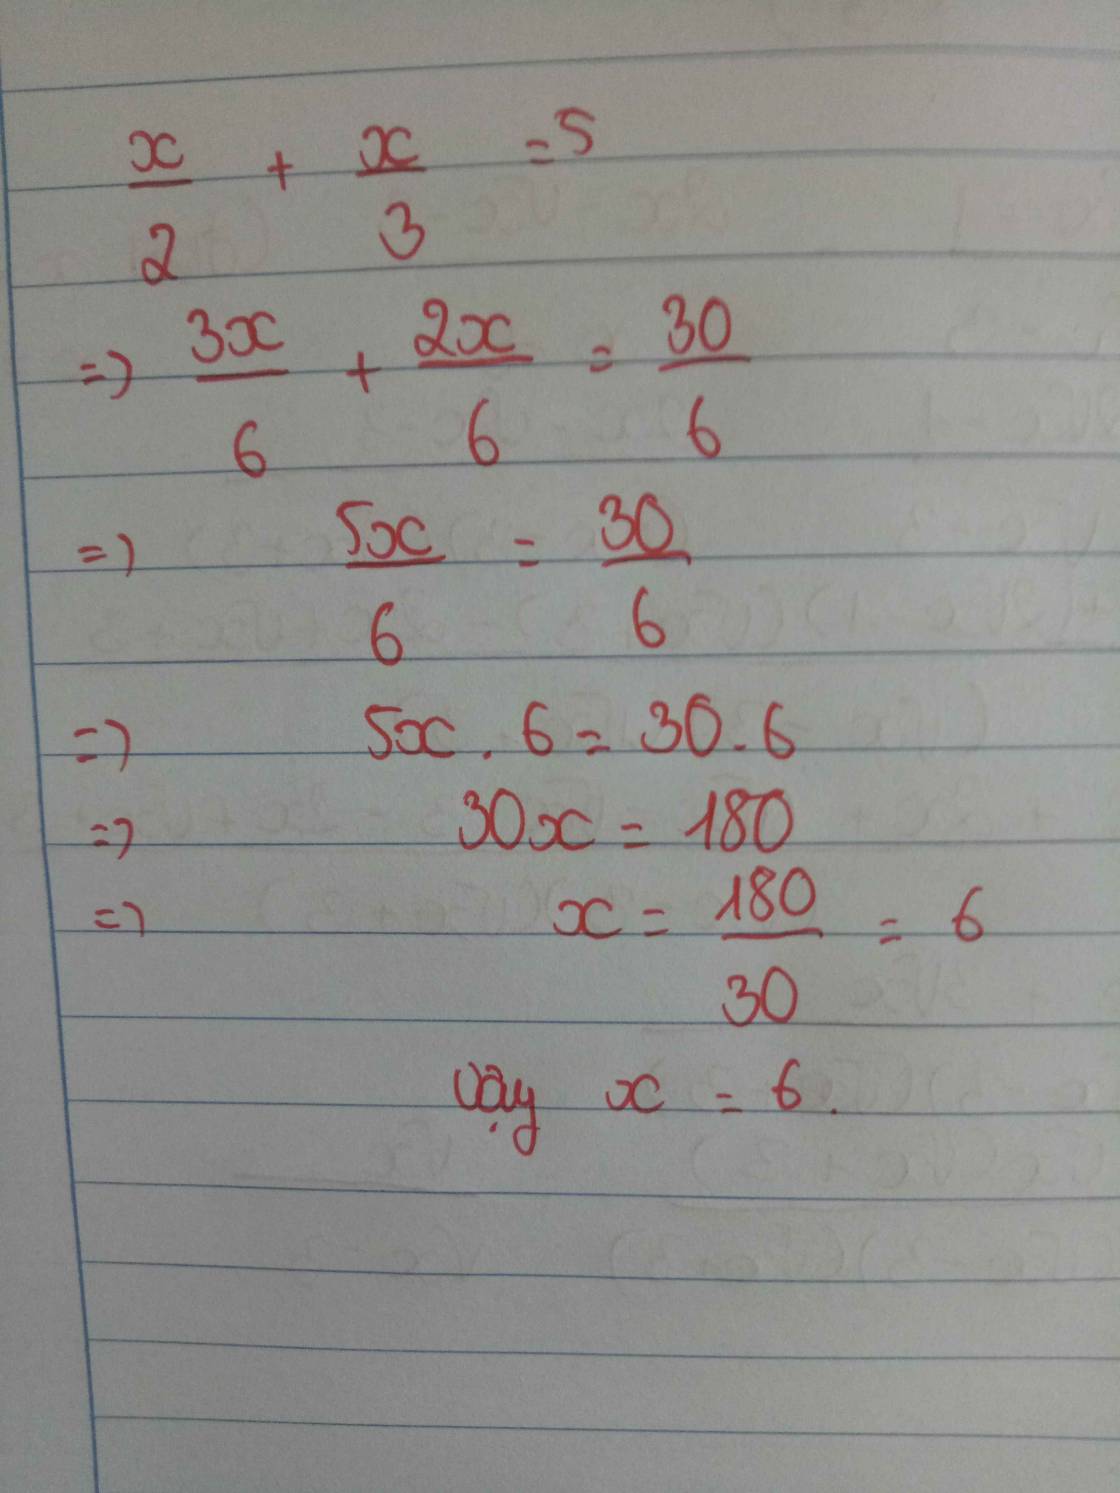 x/2 + x/3 = 5
=> 3x/6 + 2x/6 = 30/6
=> 5x/6 = 30/6
=> 5x . 6 = 30 . 6
=> 30x = 180
=> x = 180/30 = 6
Vậy x = 6.